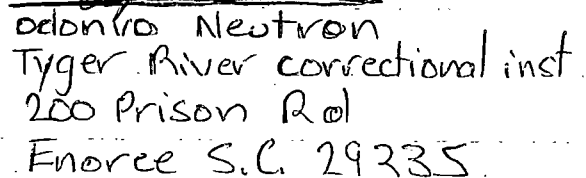 Neutron
Tyger River correctional inst.
200 Prison Rd
Enoree S.C. 29335